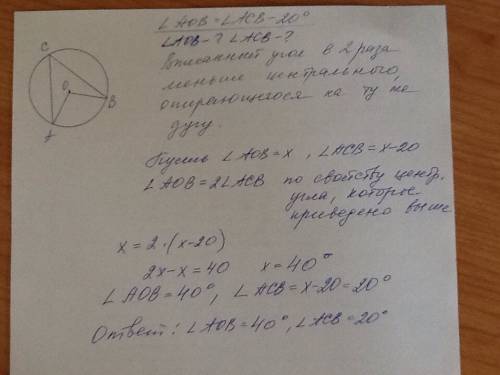 ∠AOB = ∠ACB - 20°
∠AOB - ? ∠ACB - ?
Вписанный угол в 2 раза
меньше центрального,
опирающегося на ту же
дугу.
C
O
B
A
Пусть ∠AOB = x, ∠ACB = x-20
∠AOB = 2∠ACB по свойству центр.
угла, которое
приведено выше
x = 2·(x-20)
2x-x = 40 x = 40°
∠AOB = 40°, ∠ACB = x-20 = 20°
Ответ: ∠AOB = 40°, ∠ACB = 20°